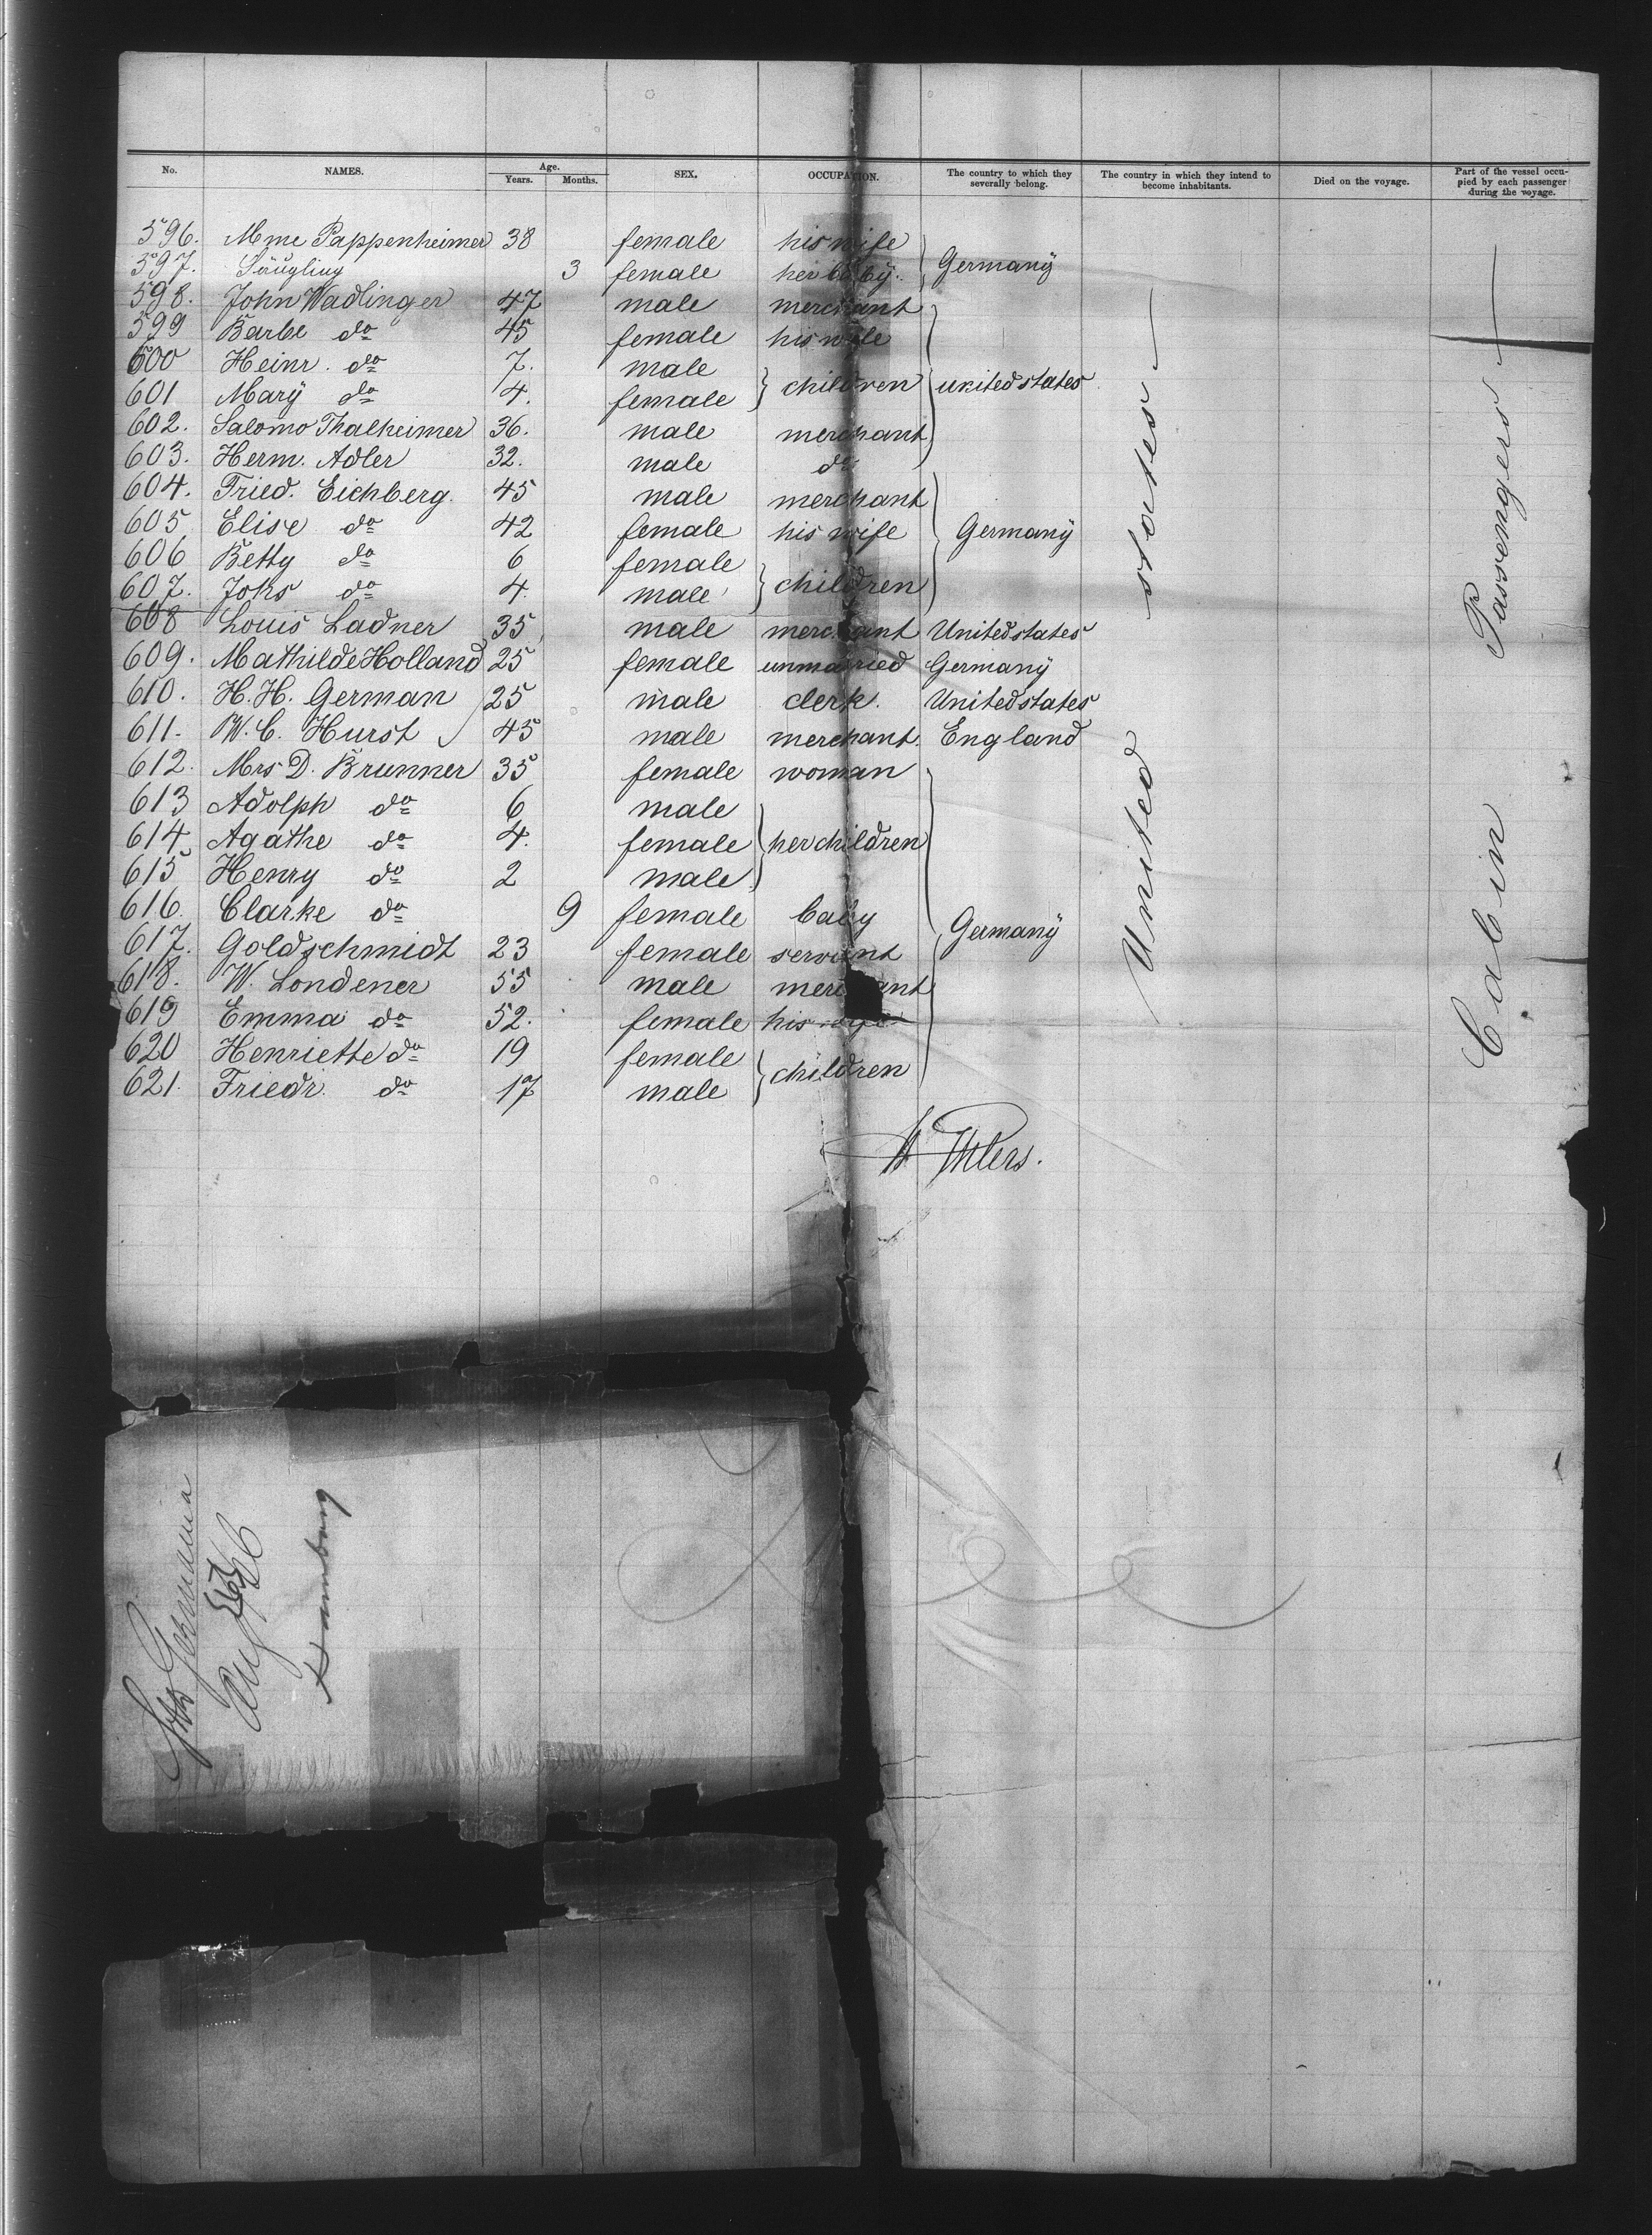 No. NAMES. Age. Years. Months. SEX. OCCUPATION. The country to which they severally belong. The country in which they intend to become inhabitants. Died on the voyage. Part of the vessel occupied by each passenger during the voyage.
596. Mme Pappenheimer 38 female his wife
597. Säugling 3 female her baby. Germany
598. John Wadlinger 47 male merchant
599 Barbe do 45 female his wife
600 Heinr. do 7. male
601 Mary do 4. female children united states
602. Salomo Thalheimer 36. male merchant
603. Herm. Adler 32. male do
604. Fried. Eichberg. 45 male merchant
605 Elise do 42 female his wife Germany
606 Betty do 6 female
607. Johs do 4. male children
608 Louis Ladner 35 male merchant United states
609. Mathilde Holland 25 female unmarried Germany
610. H. H. German 25 male clerk. United states
611. W. C. Hurst 45 male merchant. England
612. Mrs D. Brunner 35 female woman
613 Adolph do 6 male
614 Agathe do 4. female her children
615 Henry do 2 male
616. Clarke do 9 female baby
617. Goldschmidt 23 female servant Germany
618. W. Londener 55 male merchant
619 Emma do 52. female his wife
620 Henriette do 19 female
621. Friedr. do 17 male children
United states
Cabin Passengers
Ehlers.
Germania
Aug
Hamburg